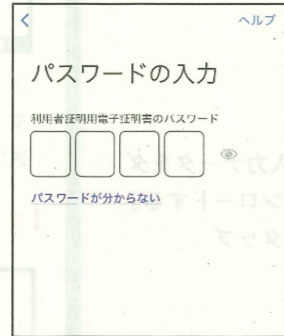 ヘルプ
パスワードの入力
利用者証明用電子証明書のパスワード
パスワードが分からない